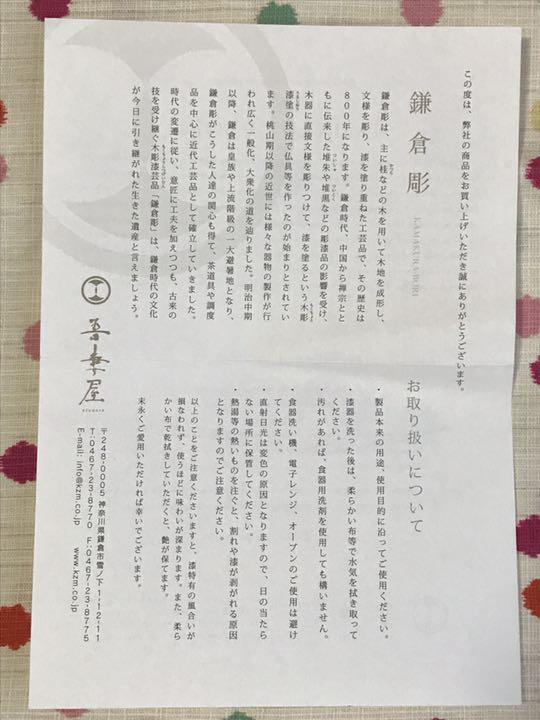 この度は、弊社の商品をお買い上げいただき誠にありがとうございます。
鎌倉彫
KAMAKURA-BORI
鎌倉彫は、主に桂などの木を用いて木地を成形し、
文様を彫り、漆を塗り重ねた工芸品で、その歴史は
800年になります。鎌倉時代、中国から禅宗とと
もに伝来した堆朱や堆黒などの彫漆品の影響を受け、
木器に直接文様を彫りつけて、漆を塗るという木彫
漆塗の技法で仏具等を作ったのが始まりとされてい
ます。桃山期以降の近世には様々な器物の製作が行
われ広く一般化、大衆化の道を辿りました。明治中期
以降、鎌倉は皇族や上流階級の一大避暑地となり、
鎌倉彫がこうした人達の関心も得て、茶道具や調度
品を中心に近代工芸品として確立していきました。
時代の変遷に従い、意匠に工夫を加えつつも、古来の
技を受け継ぐ木彫漆芸品「鎌倉彫」は、鎌倉時代の文化
が今日に引き継がれた生きた遺産と言えましょう。
お取り扱いについて
・製品本来の用途、使用目的に沿ってご使用ください。
・漆器を洗った後は、柔らかい布等で水気を拭き取って
ください。
・汚れがあれば、食器用洗剤を使用しても構いません。
・食器洗い機、電子レンジ、オーブンのご使用は避け
てください。
・直射日光は変色の原因となりますので、日の当たら
ない場所に保管してください。
・熱湯等の熱いものを注ぐと、割れや漆が剥がれる原因
となりますのでご注意ください。
以上のことをご注意くださいますと、漆特有の風合いが
損なわれず、使うほどに味わいが深まります。また、柔ら
かい布で乾拭きしていただくと、艶が保てます。
末永くご愛用いただければ幸いでございます。
吾妻屋
〒248-0005 神奈川県鎌倉市雪ノ下1-12-11
T:0467-23-8770 F:0467-23-8775
E-mail: info@kzm.co.jp www.kzm.co.jp